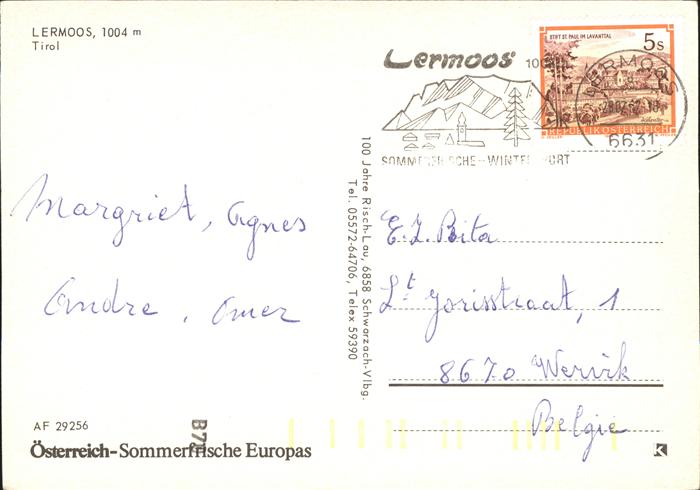 LERMOOS, 1004 m
Tirol
Lermoos
STIFT ST. PAUL IM LAVANTTAL
5s
REPUBLIK ÖSTERREICH
6631
100 Jahre Risch-Lau, 6858 Schwarzach-Vlbg.
Tel. 05572-64706, Telex 59390
Margriet, Agnes
Andre, Omer
E.Z. Bita
St Jorisstraat, 1
8670 Wervik
België
AF 29256
B7
Österreich-Sommerfrische Europas
K